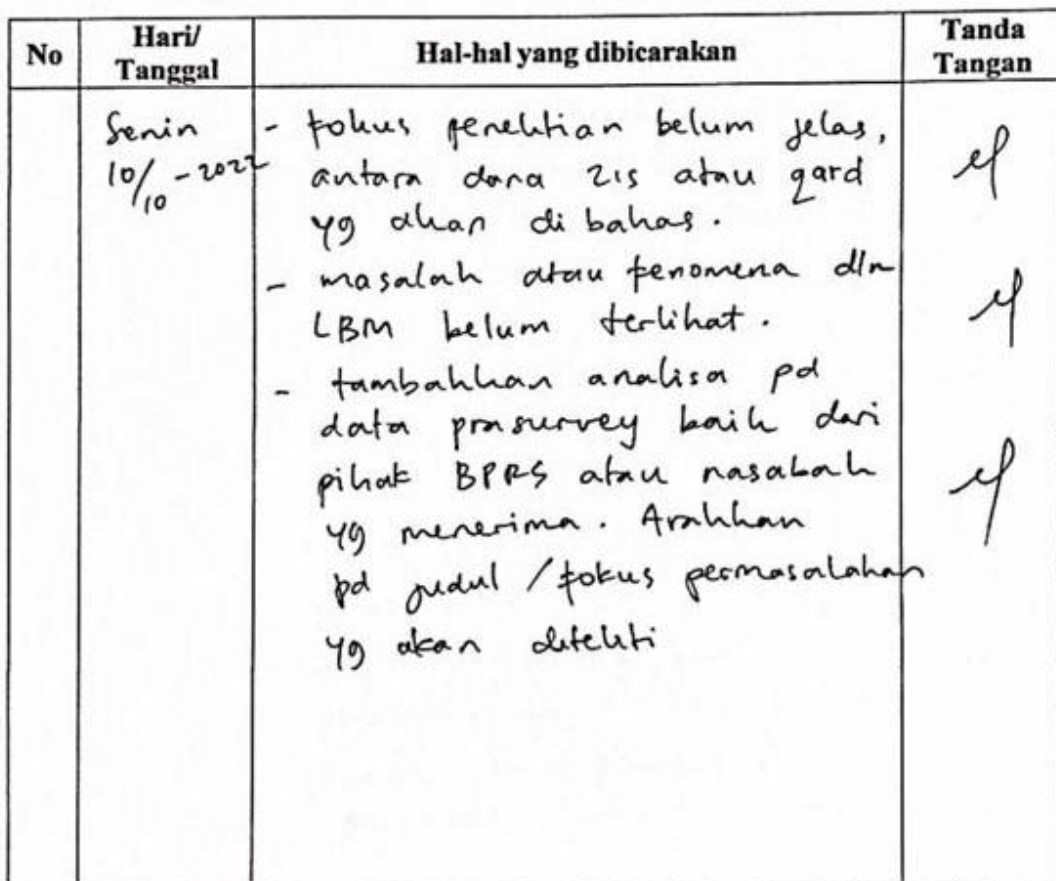 No Hari/ Tanggal Hal-hal yang dibicarakan Tanda Tangan
Senin
10/10 - 2022
- Fokus penelitian belum jelas,
antara dana ZIS atau qard
yg akan di bahas.
- masalah atau fenomena dlm
LBM belum terlihat.
- tambahkan analisa pd
data prasurvey baik dari
pihak BPRS atau nasabah
yg menerima. Arahkan
pd judul / fokus permasalahan
yg akan diteliti